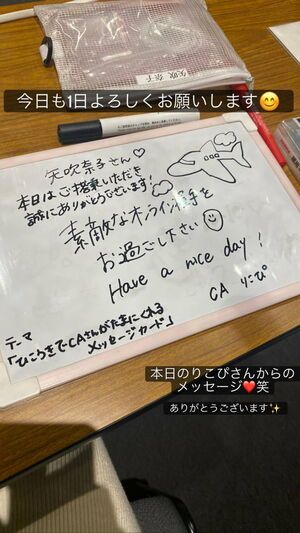 矢吹奈子
今日も1日よろしくお願いします😊
矢吹奈子さん♡
本日はご搭乗いただき
誠にありがとうございます!
素敵なオンライン握手を
お過ごし下さい
Have a nice day!
CA りこぴ
テーマ
「ひこうきでCAさんがたまにくれる
メッセージカード」
本日のりこぴさんからの
メッセージ❤️笑
ありがとうございます✨